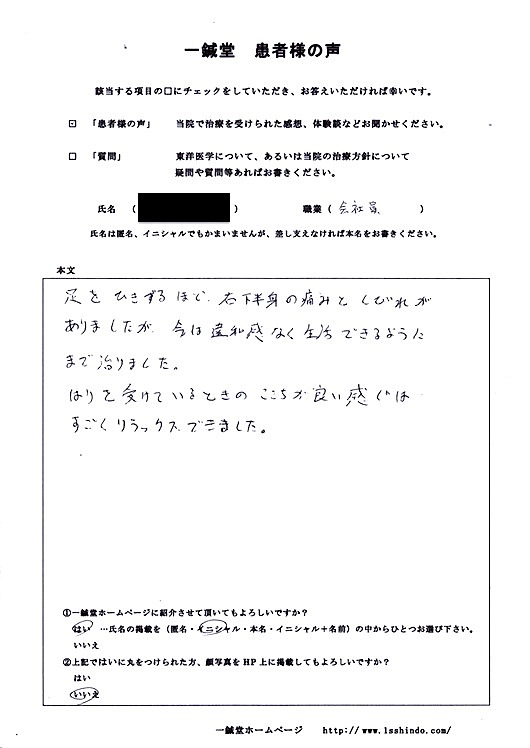 一鍼堂　患者様の声
該当する項目の□にチェックをしていただき、お答えいただければ幸いです。
☑　「患者様の声」　当院で治療を受けられた感想、体験談などお聞かせください。
□　「質問」　東洋医学について、あるいは当院の治療方針について
疑問や質問等あればお書きください。
氏名　（　）　職業（　会社員　）
氏名は匿名、イニシャルでもかまいませんが、差し支えなければ本名をお書きください。
本文
足を ひきずるほど、右下半身の痛みと しびれが
ありましたが、今は違和感なく生活できるように
まで治りました。
はりを受けているときの ここちが良い感じは
すごくリラックスできました。
①一鍼堂ホームページに紹介させて頂いてもよろしいですか？
はい　…氏名の掲載を（匿名・イニシャル・本名・イニシャル＋名前）の中からひとつお選び下さい。
いいえ
②上記ではいに丸をつけられた方、顔写真をHP上に掲載してもよろしいですか？
はい
いいえ
一鍼堂ホームページ　http://www.1sshindo.com/